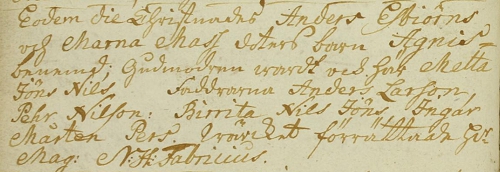 Eodem die Christnades Anders Esbiörns
och Marna Mass doters barn Agnis
benemd: Gudmodren wardt
Jöns Nils, Faddrarna Anders Larson,
Pehr Nilson: Birrita Nils Jöns, Ingar
Mårten Pers. förrättade
Mag: N: H: Fabricius.